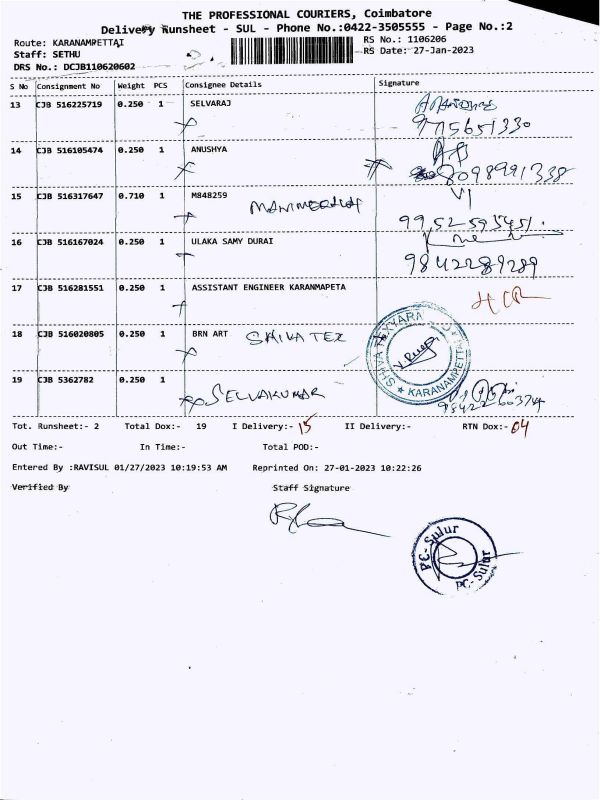 THE PROFESSIONAL COURIERS, Coimbatore
Delivery Runsheet - SUL - Phone No.:0422-3505555 - Page No.:2
Route: KARANAMPETTAI
Staff: SETHU
DRS No.: DCJB110620602
RS No.: 1106206
RS Date: 27-Jan-2023
S No Consignment No Weight PCS Consignee Details Signature
13 CJB 516225719 0.250 1 SELVARAJ
9715651330
14 CJB 516105474 0.250 1 ANUSHYA
8098991338
15 CJB 516317647 0.710 1 M848259
9952595451
16 CJB 516167024 0.250 1 ULAKA SAMY DURAI
9842289289
17 CJB 516281551 0.250 1 ASSISTANT ENGINEER KARANMAPETA
18 CJB 516020805 0.250 1 BRN ART SHIVA TEX
SHIVA TEXYARA
KARANAMPETTAI
19 CJB 5362782 0.250 1 SELVAKUMAR
Tot. Runsheet:- 2 Total Dox:- 19 I Delivery:- 15 II Delivery:- RTN Dox:- 04
Out Time:- In Time:- Total POD:-
Entered By :RAVISUL 01/27/2023 10:19:53 AM Reprinted On: 27-01-2023 10:22:26
Verified By Staff Signature
PC- Sulur
PC- Sulur